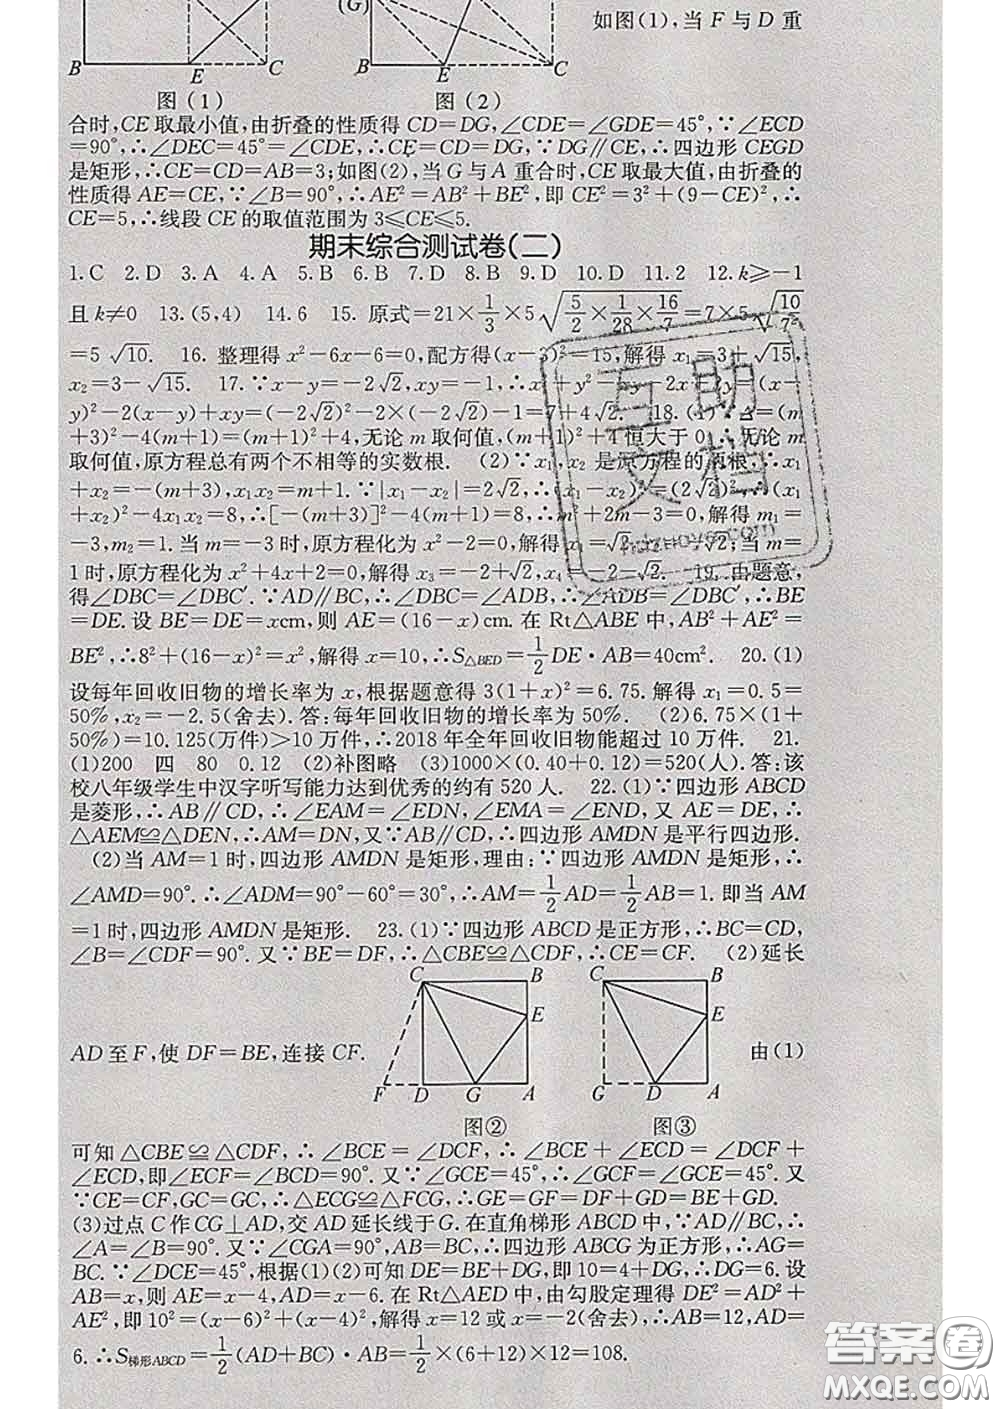 (G)
如图(1),当F与D重
B E C E C
图(1) 图(2)
合时,CE取最小值,由折叠的性质得CD=DG,∠CDE=∠GDE=45°,∵∠ECD
=90°,∴∠DEC=45°=∠CDE,∴CE=CD=DG,∵DG∥CE,∴四边形CEGD
是矩形,∴CE=CD=AB=3;如图(2),当G与A重合时,CE取最大值,由折叠的
性质得AE=CE,∵∠B=90°,∴AE²=AB²+BE²,即CE²=3²+(9-CE)²,∴
CE=5,∴线段CE的取值范围为3≤CE≤5.
期末综合测试卷(二)
1.C 2.D 3.A 4.A 5.B 6.B 7.D 8.B 9.D 10.D 11.2 12.k≥-1
且k≠0 13.(5,4) 14.6 15.原式=21×1/3×5√(5/2×1/28×16/7)=7×5√(10/7²)
=5√10. 16.整理得x²-6x-6=0,配方得(x-3)²=15,解得x₁=3+√15,
x₂=3-√15. 17.∵x-y=-2√2,xy=-1,∴x²+y²-xy-2x+2y=(x-
y)²-2(x-y)+xy=(-2√2)²-2×(-2√2)-1=7+4√2. 18.(1)∵△=(m
+3)²-4(m+1)=(m+1)²+4,无论m取何值,(m+1)²+4恒大于0,∴无论m
取何值,原方程总有两个不相等的实数根. (2)∵x₁,x₂是原方程的两根,∴x₁
+x₂=-(m+3),x₁x₂=m+1.∵|x₁-x₂|=2√2,∴(x₁-x₂)²=(2√2)²,∴(x₁
+x₂)²-4x₁x₂=8,∴[-(m+3)]²-4(m+1)=8,∴m²+2m-3=0,解得m₁=
-3,m₂=1.当m=-3时,原方程化为x²-2=0,解得x₁=√2,x₂=-√2;当m=
1时,原方程化为x²+4x+2=0,解得x₃=-2+√2,x₄=-2-√2. 19.由题意,
得∠DBC=∠DBC′.∵AD∥BC,∴∠DBC=∠ADB,∴∠ADB=∠DBC′,∴BE
=DE.设BE=DE=xcm,则AE=(16-x)cm.在Rt△ABE中,AB²+AE²=
BE²,∴8²+(16-x)²=x²,解得x=10,∴S△BED=1/2DE·AB=40cm². 20.(1)
设每年回收旧物的增长率为x,根据题意得3(1+x)²=6.75.解得x₁=0.5=
50%,x₂=-2.5(舍去).答:每年回收旧物的增长率为50%. (2)6.75×(1+
50%)=10.125(万件)>10万件,∴2018年全年回收旧物能超过10万件. 21.
(1)200 四 80 0.12 (2)补图略 (3)1000×(0.40+0.12)=520(人).答:该
校八年级学生中汉字听写能力达到优秀的约有520人. 22.(1)∵四边形ABCD
是菱形,∴AB∥CD,∴∠EAM=∠EDN,∠EMA=∠END,又AE=DE,∴
△AEM≌△DEN,∴AM=DN,又∵AB∥CD,∴四边形AMDN是平行四边形.
(2)当AM=1时,四边形AMDN是矩形,理由:∵四边形AMDN是矩形,∴
∠AMD=90°.∴∠ADM=90°-60°=30°,∴AM=1/2AD=1/2AB=1.即当AM
=1时,四边形AMDN是矩形. 23.(1)∵四边形ABCD是正方形,∴BC=CD,
∠B=∠CDF=90°.又∵BE=DF,∴△CBE≌△CDF,∴CE=CF. (2)延长
C B C B
E E
AD至F,使DF=BE,连接CF. 由(1)
F D G A G D A
图② 图③
可知△CBE≌△CDF,∴∠BCE=∠DCF,∴∠BCE+∠ECD=∠DCF+
∠ECD,即∠ECF=∠BCD=90°.又∵∠GCE=45°,∴∠GCF=∠GCE=45°.又
∵CE=CF,GC=GC,∴△ECG≌△FCG,∴GE=GF=DF+GD=BE+GD.
(3)过点C作CG⊥AD,交AD延长线于G.在直角梯形ABCD中,∵AD∥BC,∴
∠A=∠B=90°.又∵∠CGA=90°,AB=BC,∴四边形ABCG为正方形,∴AG=
BC.∵∠DCE=45°,根据(1)(2)可知DE=BE+DG,即10=4+DG,∴DG=6.设
AB=x,则AE=x-4,AD=x-6.在Rt△AED中,由勾股定理得DE²=AD²+
AE²,即10²=(x-6)²+(x-4)²,解得x=12或x=-2(舍去),∴AB=12,AD=
6.∴S梯形ABCD=1/2(AD+BC)·AB=1/2×(6+12)×12=108.
互助
文档
答案圈
MXQE.COM